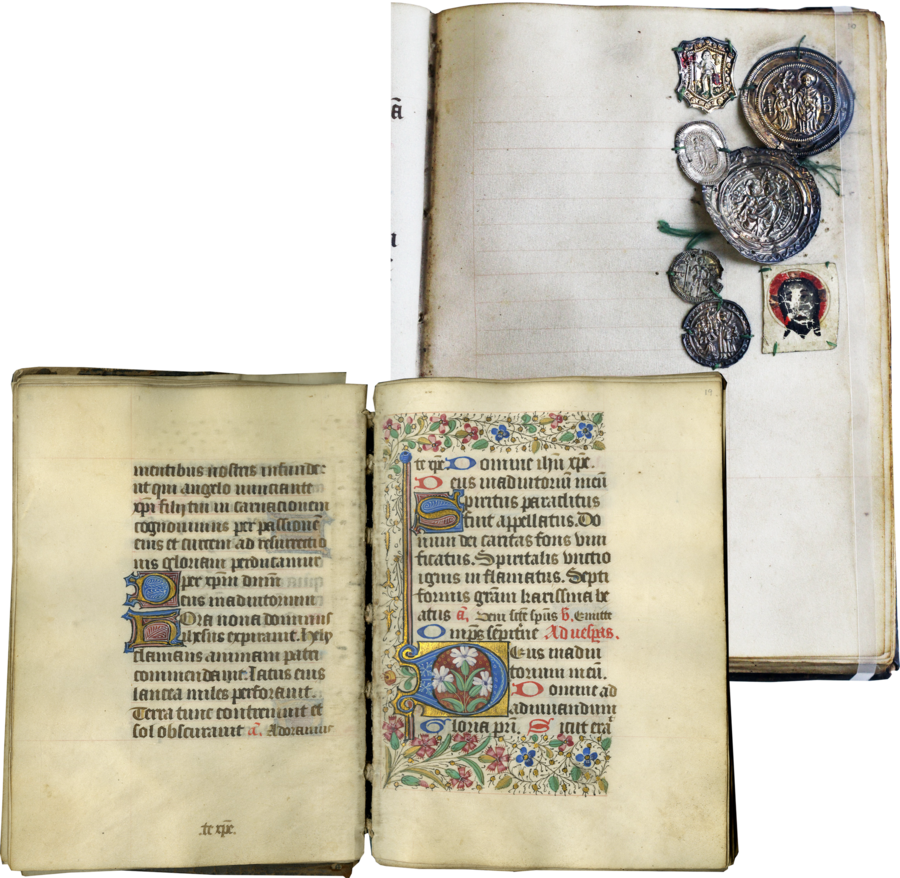 mentibus nostris infunde:
ut qui angelo nunciante
xp̄i filij tui in carnationem
cognouimus per passionē
eius et crucem ad resurrectio
nis gloriam perducamur
per xp̄m dn̄m
Deus in adiutorium
Hora nona dominus
ihesus expirauit. Hely
clamans animam patri
commendauit. Latus eius
lancea miles perforauit.
Terra tunc contremuit et
sol obscurauit a. Adoramus
te xp̄e.
19
te xp̄e Domine ihū xp̄e.
Deus in adiutoriū meū
Spiritus paraclitus
fuit appellatus. Do
num dei caritas fons viui
ficatus. Spiritalis vnctio
ignis in flamatus. Septi
formis grām karissima be
atus a. Veni scte spūs v. Emitte
Ad vesp̄as.
Deus in adiu
torium meū.
Domine ad
adiuuandum
Gloria pr̄i. Sicut erat